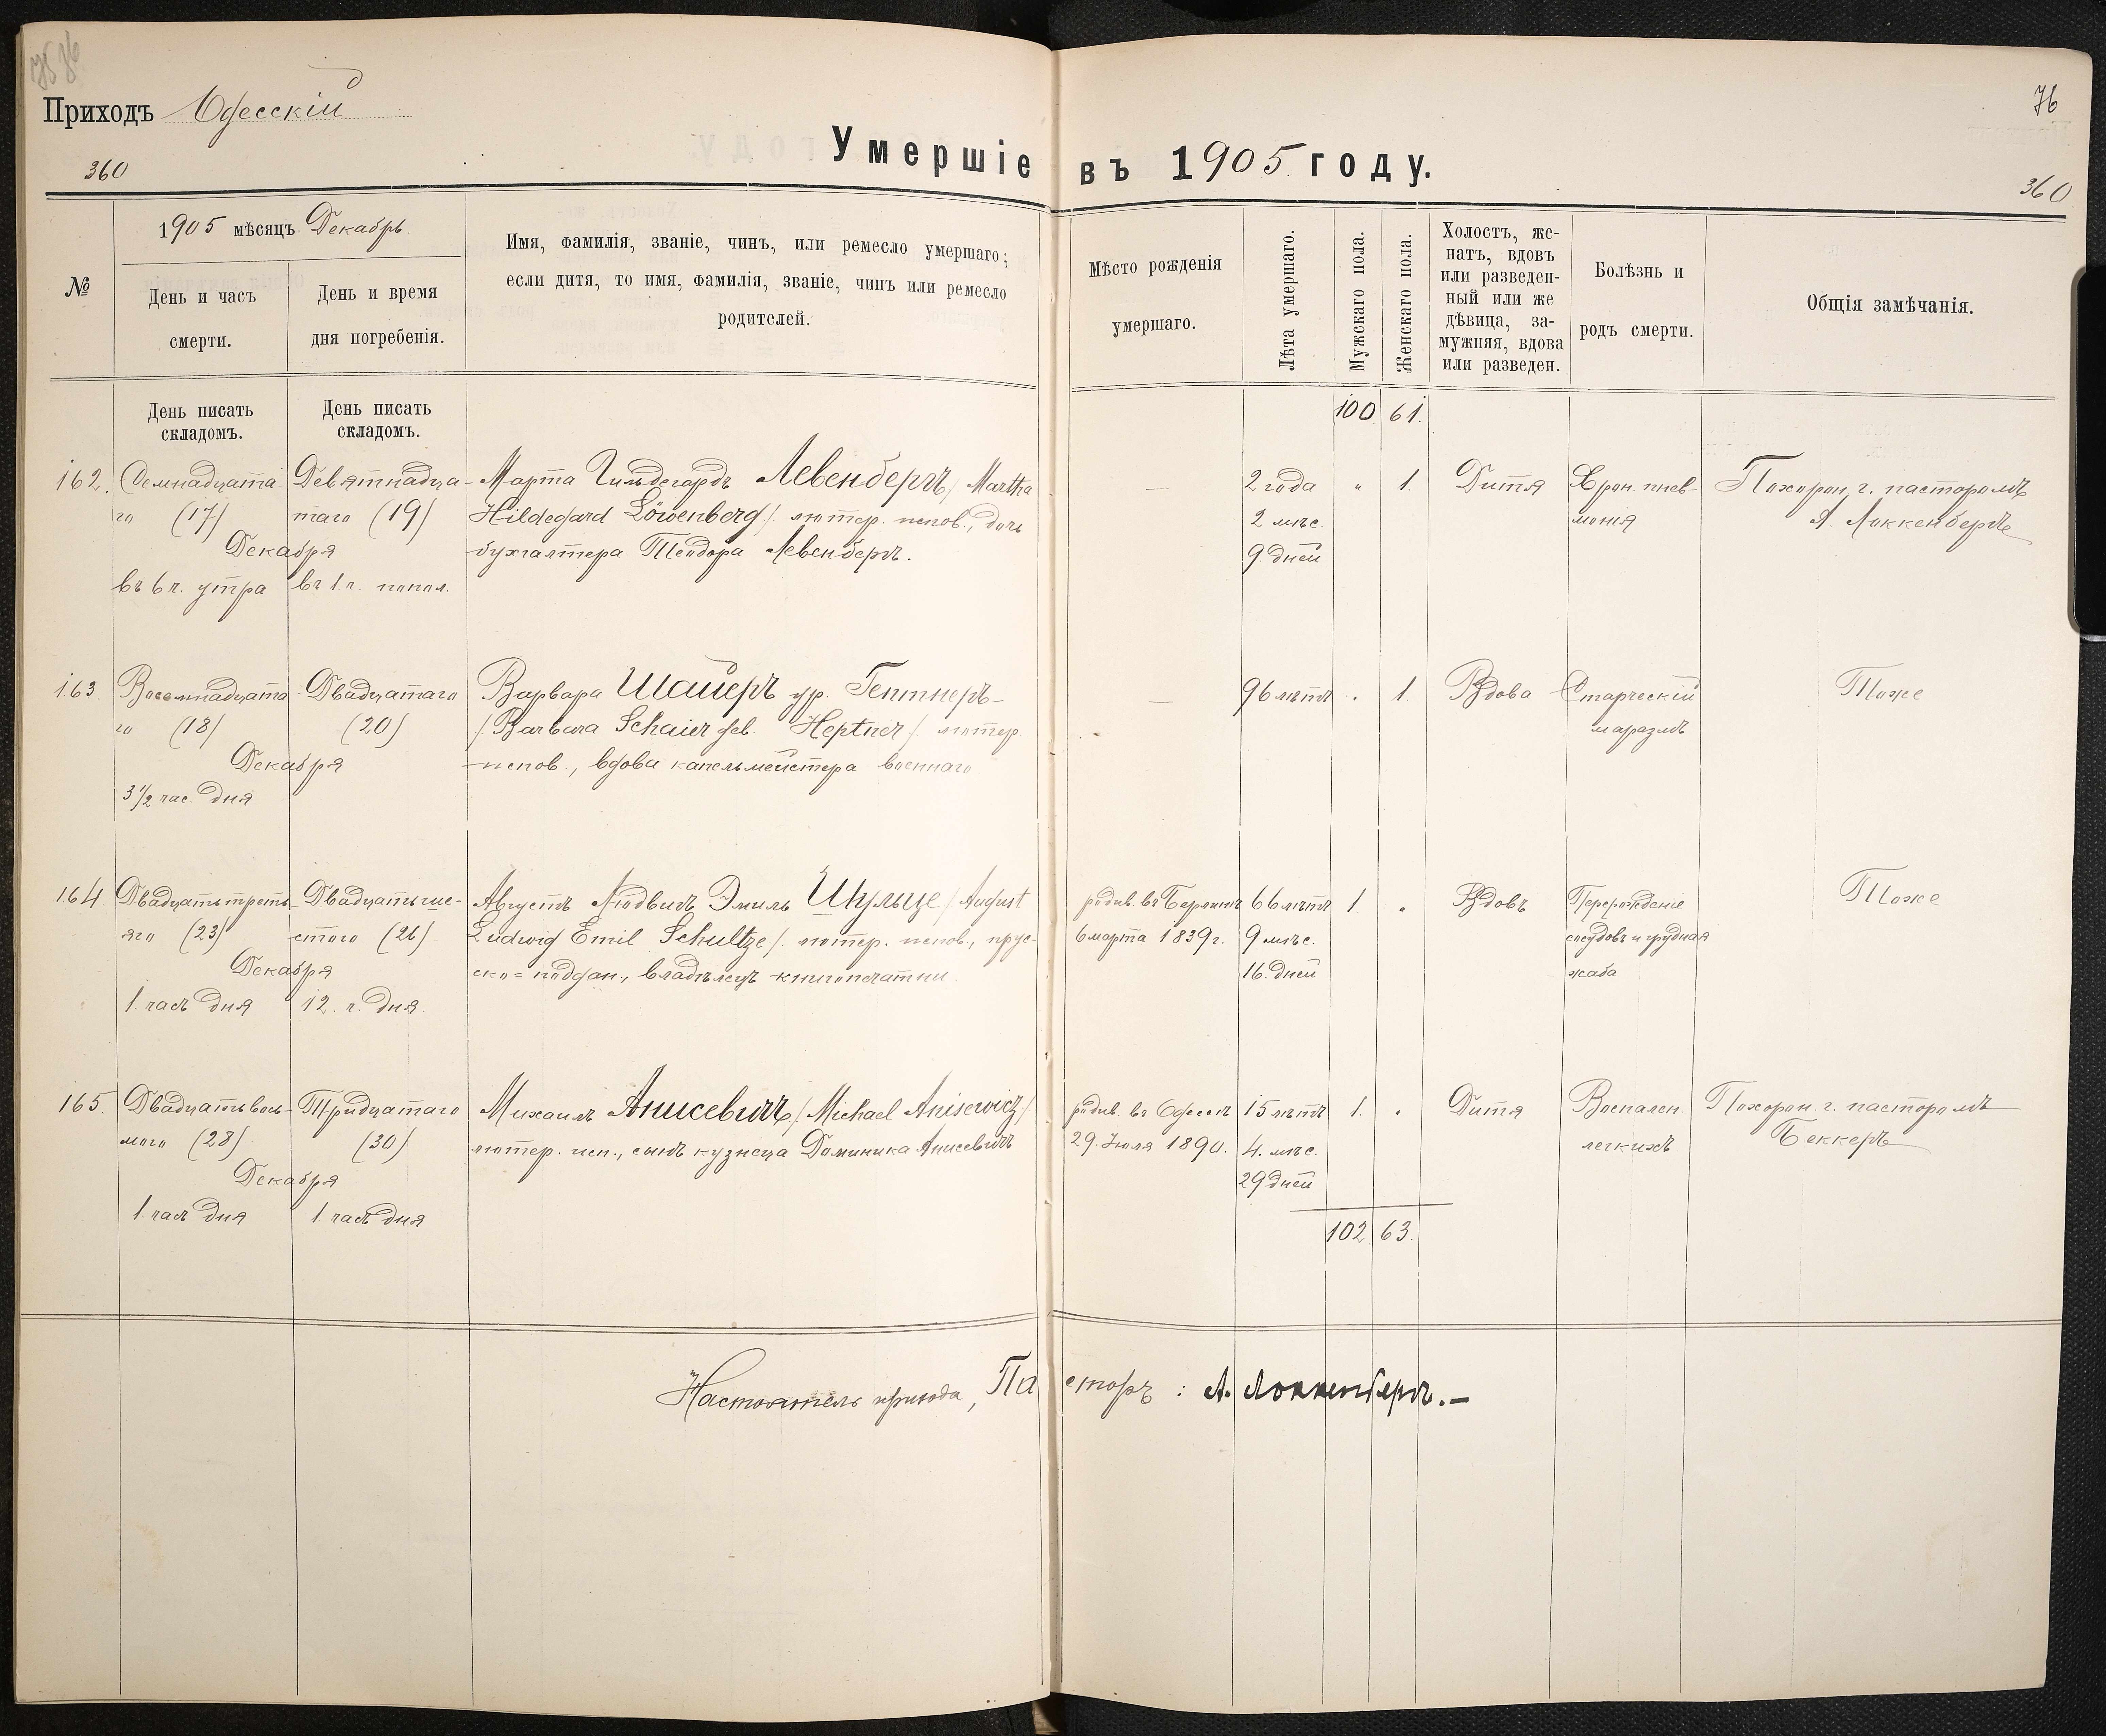 75 76
Приходъ Одесскій
360
Умершіе въ 1905 году.
76
360
№
1905 мѣсяцъ Декабрь
День и часъ
смерти.
День и время
дня погребенія.
Имя, фамилія, званіе, чинъ, или ремесло умершаго;
если дитя, то имя, фамилія, званіе, чинъ или ремесло
родителей.
Мѣсто рожденія
умершаго.
Лѣта умершаго.
Мужскаго пола.
Женскаго пола.
Холостъ, же-
натъ, вдовъ
или разведен-
ный или же
дѣвица, за-
мужняя, вдова
или разведен.
Болѣзнь и
родъ смерти.
Общія замѣчанія.
День писать
складомъ.
День писать
складомъ.
100 61.
162.
Семнадцата
го (17)
Декабря
въ 6 ч. утра
Девятнадца-
таго (19)
въ 1 ч. попол.
Марта Гильдегардъ Левенбергъ / Martha
Hildegard Löwenberg /. лютер. испов., дочь
бухгалтера Теодора Левенбергъ.
—
2 года
2 мѣс.
9 дней
" 1.
Дитя
Хрон. пнев-
монія
Похорон. г. пасторомъ
А. Локкенбергъ
163
Восемнадцата
го (18)
Декабря
3 1/2 час. дня
Двадцатаго
(20)
Варвара Шайеръ ур. Гептнеръ
/ Barbara Schaier geb. Heptner /. лютер.
испов., вдова капельмейстера военнаго
—
96 лѣтъ
. 1.
Вдова
Старческій
маразмъ
Тоже
164.
Двадцать треть-
яго (23)
Декабря
1. часъ дня
Двадцать ше-
стого (26)
12. ч. дня.
Августъ Людвигъ Эмиль Шульце / August
Ludwig Emil Schultze /. лютер. испов., прус-
ско = поддан., владѣлецъ книгопечатни.
родив. въ Берлинѣ
6 марта 1839 г.
66 лѣтъ
9 мѣс.
16. дней
1. "
Вдовъ
Перерожденіе
сосудовъ и грудная
жаба
Тоже
165.
Двадцать вось-
мого (28)
Декабря
1. часъ дня
Тридцатаго
(30)
1 часъ дня
Михаилъ Анисевичъ / Michael Anisewicz /
лютер. исп., сынъ кузнеца Доминика Анисевичъ
родив. въ Одессѣ
29. Іюля 1890.
15 лѣтъ
4. мѣс.
29 дней
1. "
Дитя
Воспален.
легкихъ
Похорон. г. пасторомъ
Беккеръ
102 63.
Настоятель прихода, Пасторъ: А. Локкенбергъ.—